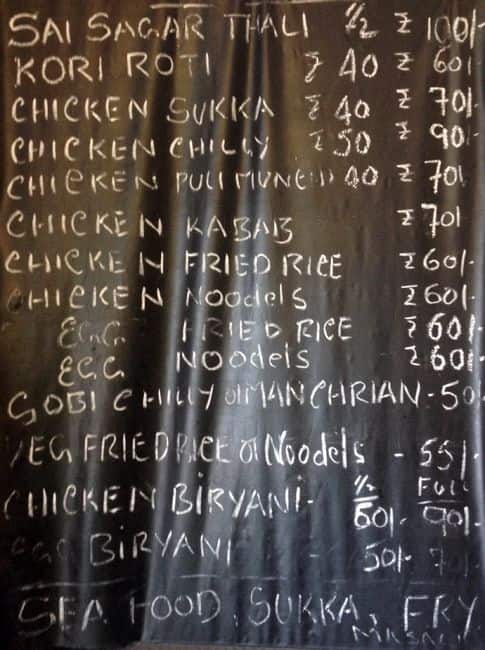 SAI SAGAR THALI ½ ₹ 100/-
KORI ROTI ₹ 40 ₹ 60/-
CHICKEN SUKKA ₹ 40 ₹ 70/-
CHICKEN CHILLY ₹ 50 ₹ 90/-
CHICKEN PULIMUNCHI 40 ₹ 70/-
CHICKEN KABAB ₹ 70/-
CHICKEN FRIED RICE ₹ 60/-
CHICKEN Noodels ₹ 60/-
EGG FRIED RICE ₹ 60/-
EGG NOOdels ₹ 60/-
GOBI CHILLY or MANCHRIAN - 50/-
VEG FRIED RICE or Noodels - 55/-
½ FULL
CHICKEN BIRYANI - 60/- 90/-
EGG BIRYANI - 50/- 70/-
SEA FOOD, SUKKA, FRY
MASALA